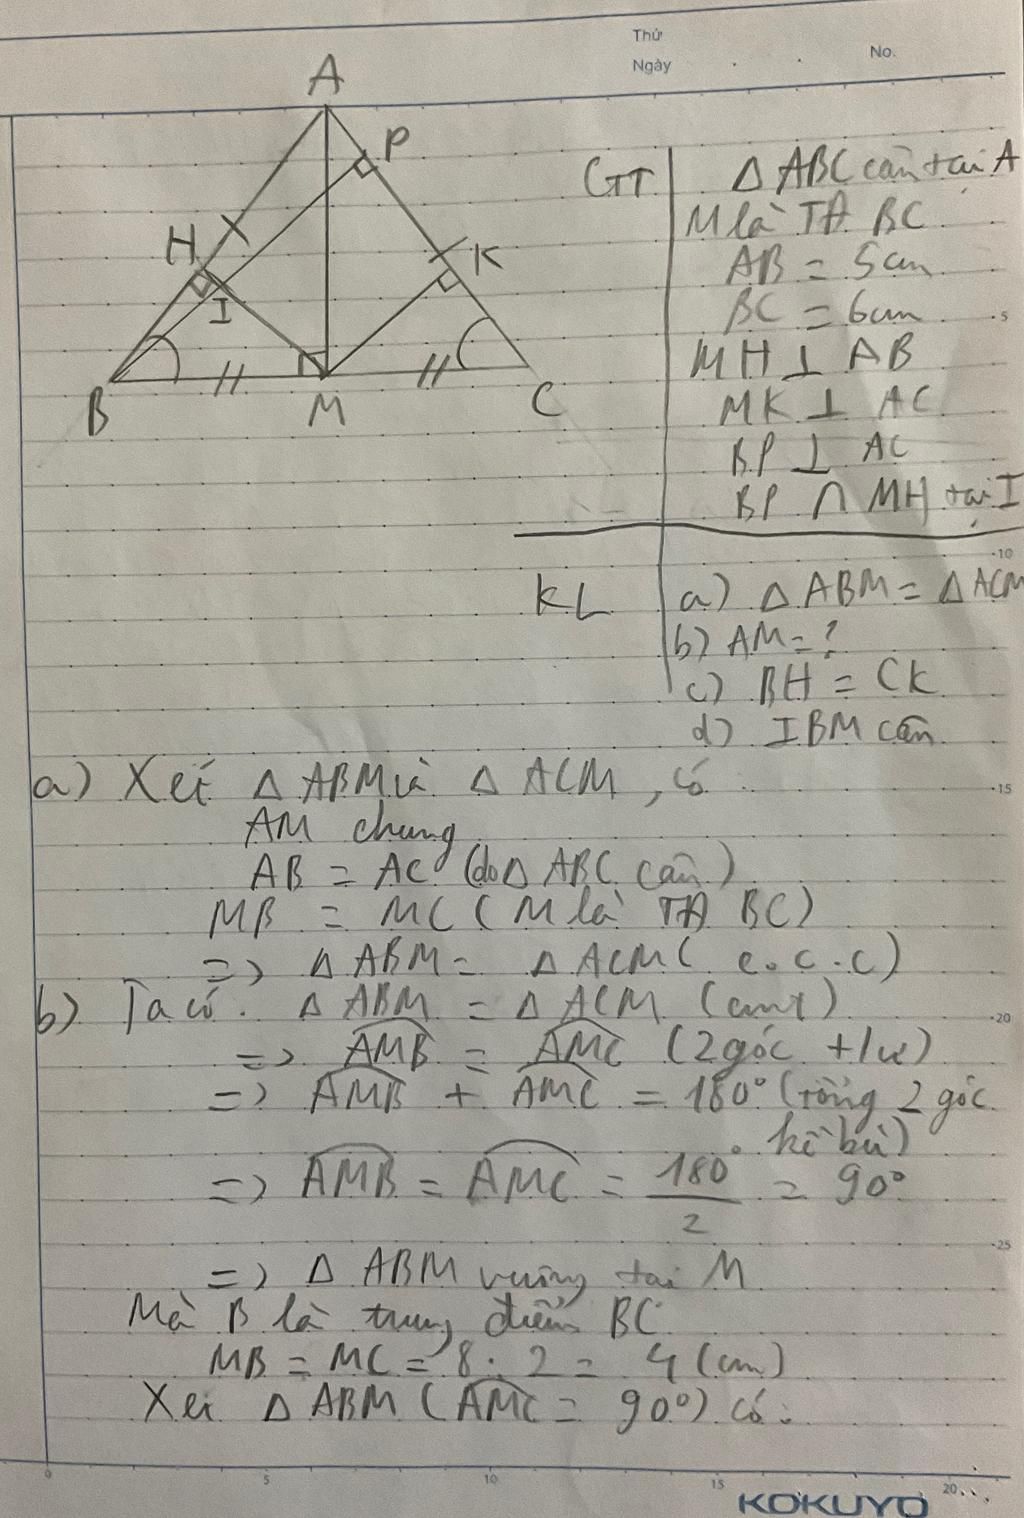 Thứ
Ngày
No.
A
P
H
K
I
B
M
C
GT
Δ ABC cân tại A
M là TĐ BC
AB = 5cm
BC = 6cm
MH ⊥ AB
MK ⊥ AC
BP ⊥ AC
BP ∩ MH tại I
KL
a) Δ ABM = Δ ACM
b) AM = ?
c) BH = CK
d) IBM cân
a) Xét Δ ABM và Δ ACM, có
AM chung
AB = AC (do Δ ABC cân)
MB = MC (M là TĐ BC)
=> Δ ABM = Δ ACM (c.c.c)
b) Ta có: Δ ABM = Δ ACM (cmt)
=> AMB = AMC (2 góc t/ư)
=> AMB + AMC = 180° (tổng 2 góc
kề bù)
=> AMB = AMC = 180°/2 = 90°
=> Δ ABM vuông tại M
Mà B là trung điểm BC
MB = MC = 8 : 2 = 4 (cm)
Xét Δ ABM (AMC = 90°) có:
5
10
15
20
25
0
5
10
15
20
KOKUYO